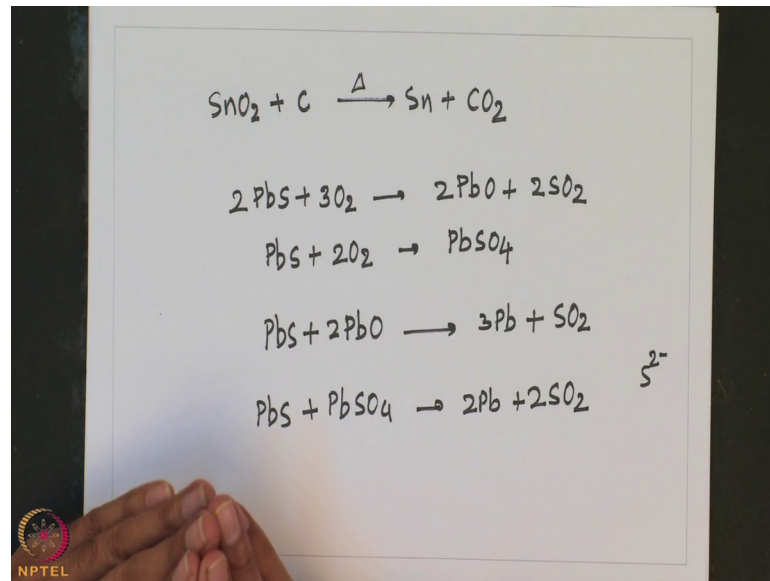 SnO₂ + C —Δ→ Sn + CO₂
2PbS + 3O₂ → 2PbO + 2SO₂
PbS + 2O₂ → PbSO₄
PbS + 2PbO → 3Pb + SO₂
S²⁻
PbS + PbSO₄ → 2Pb + 2SO₂
NPTEL